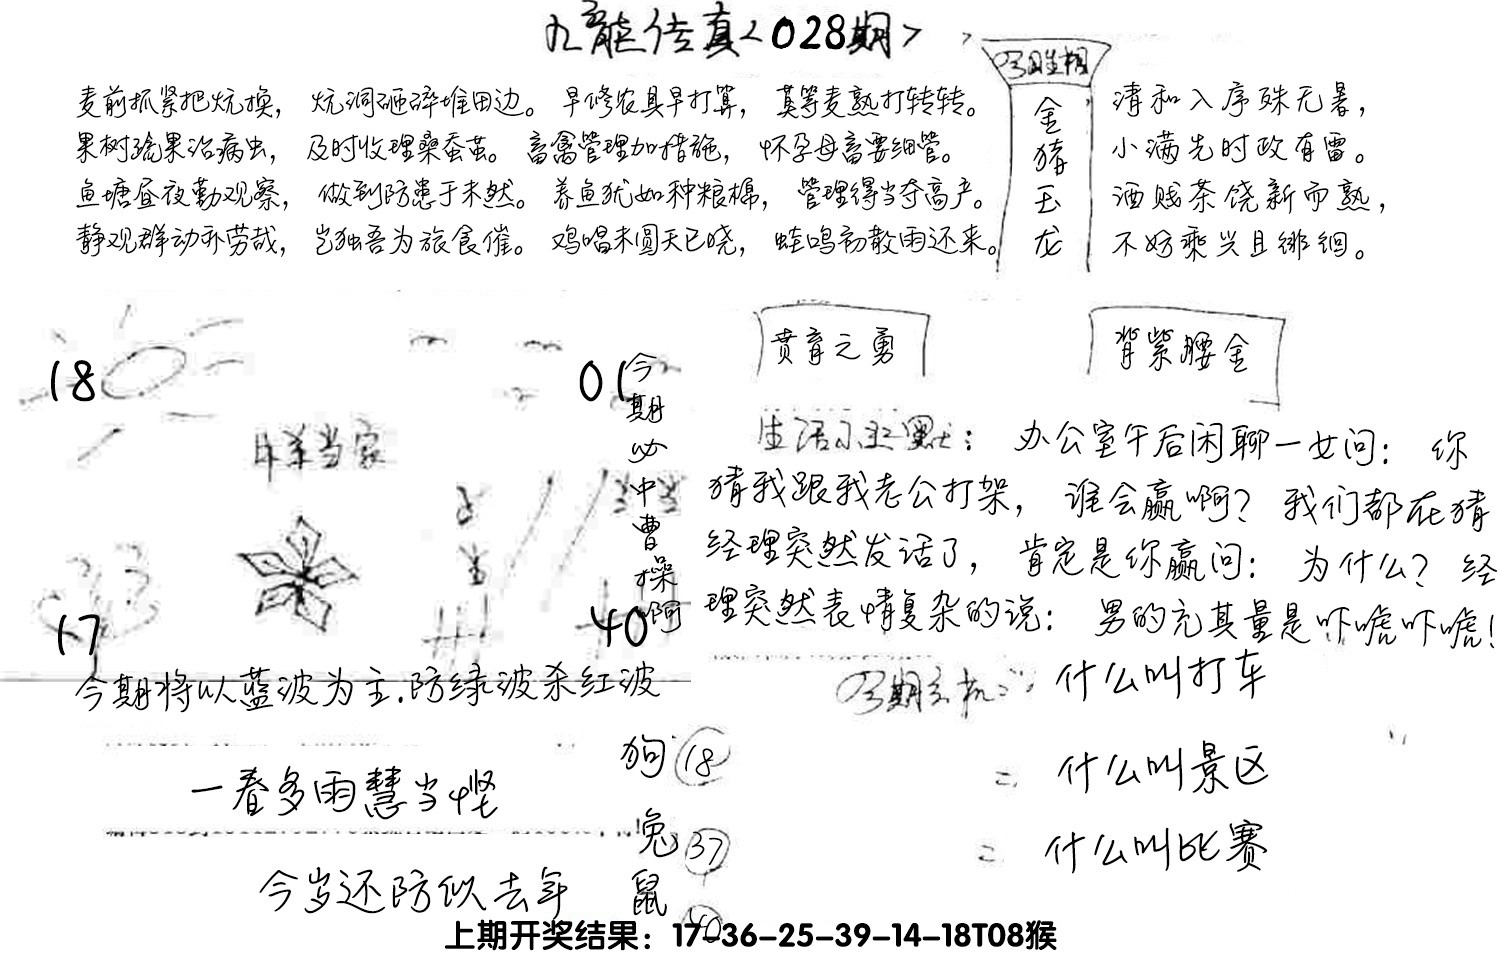 九龙传真<028期>
今期生相
金猪玉龙
麦前抓紧把炕换，炕洞砸碎堆田边。早修农具早打算，莫等麦熟打转转。
果树疏果治病虫，及时收理桑蚕茧。畜禽管理加措施，怀孕母畜要细管。
鱼塘昼夜勤观察，做到防患于未然。养鱼犹如种粮棉，管理得当夺高产。
静观群动亦劳哉，岂独吾为旅食催。鸡唱未圆天已晓，蛙鸣初散雨还来。
清和入序殊无暑，
小满先时政有雷。
酒贱茶饶新而熟，
不妨乘兴且徘徊。
18
01
今期必中曹操啊
羊当家
17
40
今期将以蓝波为主.防绿波杀红波
一春多雨慧当悭
今岁还防似去年
狗 18
兔 37
鼠 40
贲育之勇
背紫腰金
生活幽默：办公室午后闲聊一女问：你
猜我跟我老公打架，谁会赢啊？我们都在猜
经理突然发话了，肯定是你赢问：为什么？经
理突然表情复杂的说：男的充其量是吓唬吓唬！
今期玄机：什么叫打车
= 什么叫景区
= 什么叫比赛
上期开奖结果：17-36-25-39-14-18T08猴